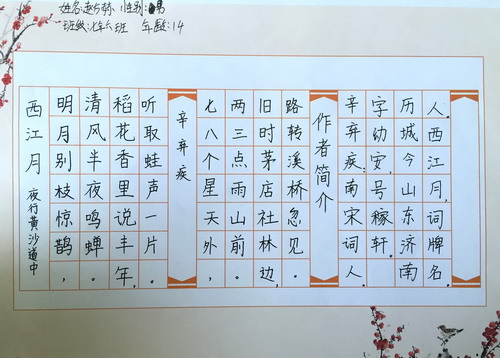 姓名: 性别:男
班级:七年 班 年龄:14
西江月 夜行黄沙道中
明月别枝惊鹊,
清风半夜鸣蝉。
稻花香里说丰年,
听取蛙声一片。
辛弃疾
七八个星天外,
两三点雨山前。
旧时茅店社林边,
路转溪桥忽见。
作者简介
辛弃疾:南宋词人.
字幼安,号稼轩.
历城今山东济南
人.西江月,词牌名.